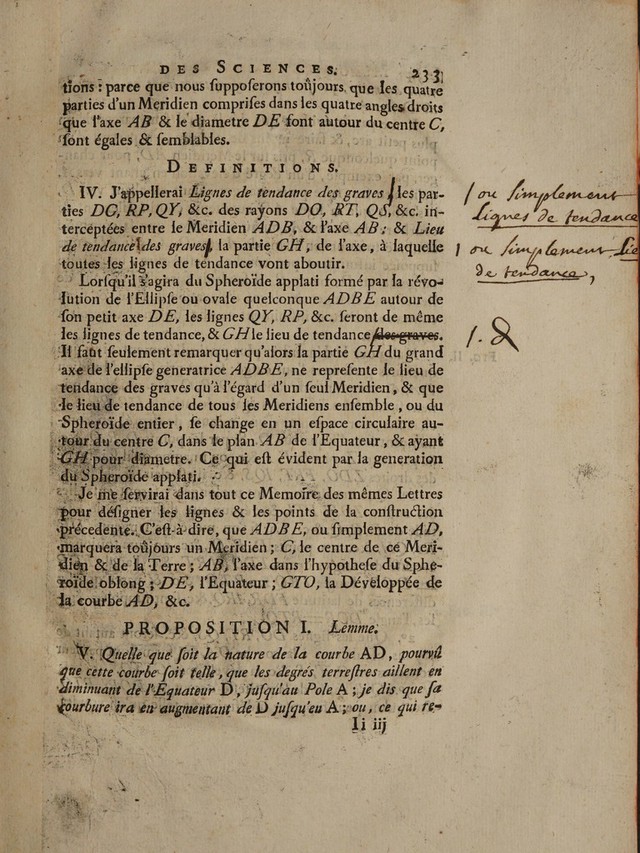 DES SCIENCES. 233
tions : parce que nous ſuppoſerons toûjours, que les quatre
parties d'un Meridien compriſes dans les quatre angles droits
que l'axe AB & le diametre DE font autour du centre C,
ſont égales & ſemblables.
DEFINITIONS.
IV. J'appellerai Lignes de tendance des graves / les par-
/ ou simplement
ties DG, RP, QY, &c. des rayons DO, RT, QS, &c. in-
Lignes de tendance
terceptées entre le Meridien ADB, & l'axe AB ; & Lieu
de tendance des graves, la partie GH, de l'axe, à laquelle
/ ou simplement Lieu
toutes les lignes de tendance vont aboutir.
de tendance,
Lorſqu'il s'agira du Spheroïde applati formé par la révo-
lution de l'Ellipſe ou ovale quelconque ADBE autour de
ſon petit axe DE, les lignes QY, RP, &c. ſeront de même
les lignes de tendance, & GH le lieu de tendance des graves.
Il faut ſeulement remarquer qu'alors la partie GH du grand
axe de l'ellipſe generatrice ADBE, ne repreſente le lieu de
tendance des graves qu'à l'égard d'un ſeul Meridien, & que
le lieu de tendance de tous les Meridiens enſemble, ou du
Spheroïde entier, ſe change en un eſpace circulaire au-
tour du centre C, dans le plan AB de l'Equateur, & ayant
GH pour diametre. Ce qui eſt évident par la generation
du Spheroïde applati.
Je me ſervirai dans tout ce Memoire des mêmes Lettres
pour déſigner les lignes & les points de la conſtruction
précedente. C'eſt-à-dire, que ADBE, ou ſimplement AD,
marquera toûjours un Meridien ; C, le centre de ce Meri-
dien & de la Terre ; AB, l'axe dans l'hypotheſe du Sphe-
roïde oblong ; DE, l'Equateur ; GTO, la Développée de
la courbe AD, &c.
PROPOSITION I. Lemme.
V. Quelle que ſoit la nature de la courbe AD, pourvû
que cette courbe ſoit telle, que les degrés terreſtres aillent en
diminuant de l'Equateur D, juſqu'au Pole A ; je dis que ſa
courbure ira en augmentant de D juſqu'en A ; ou, ce qui re-
Ii iij